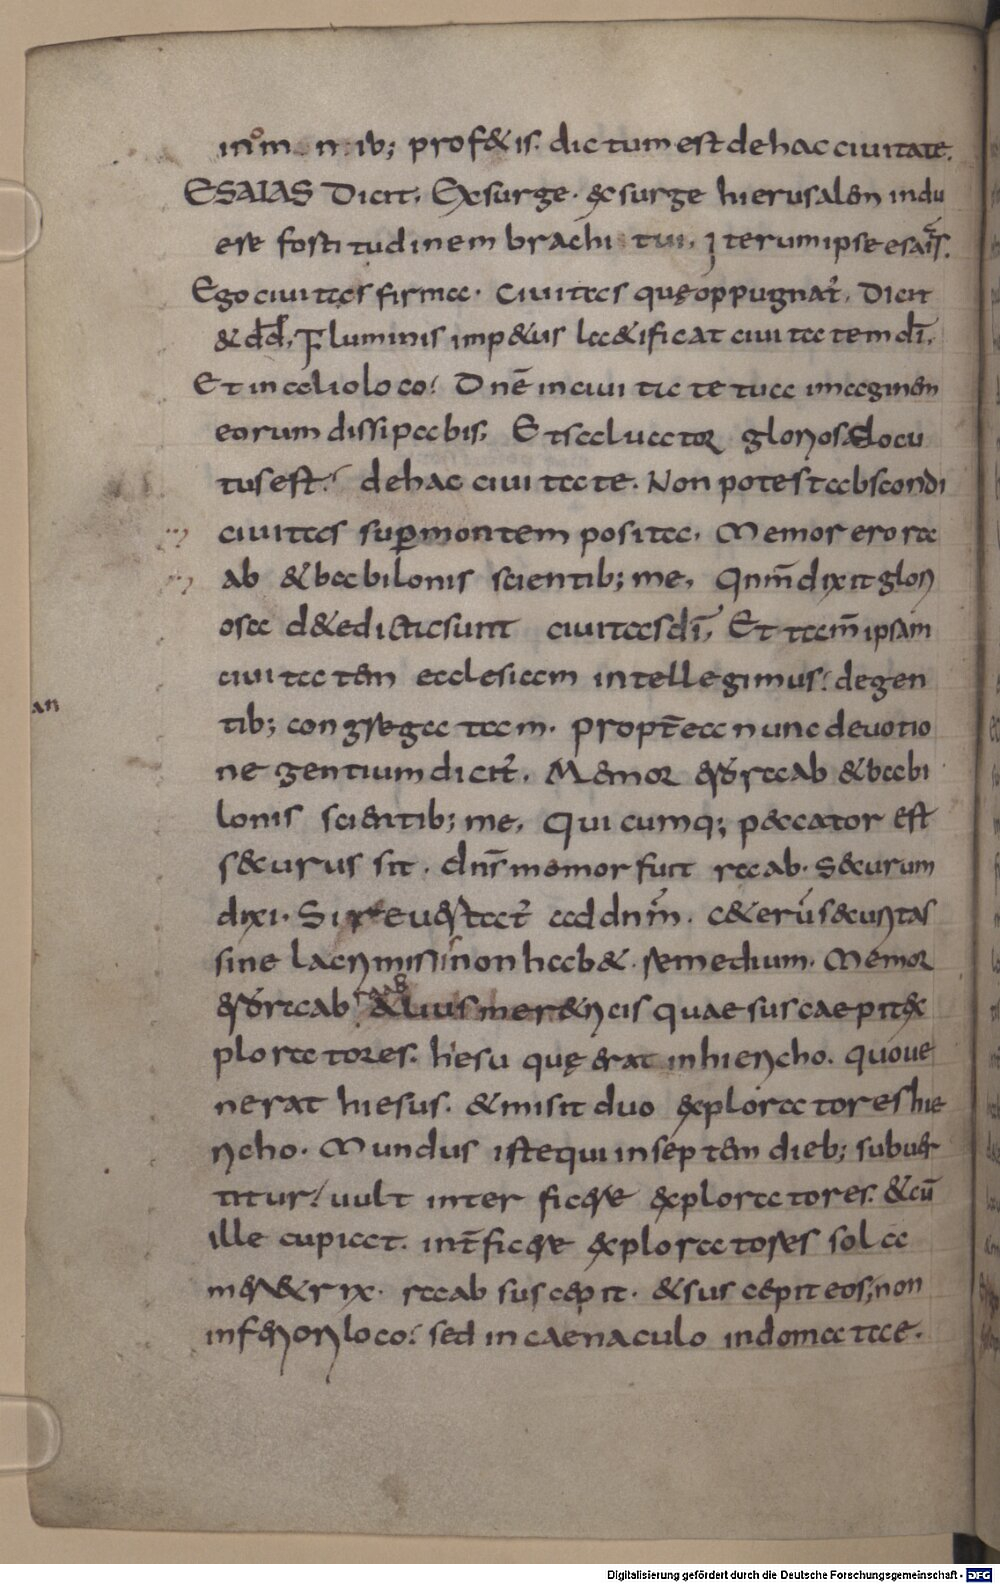 in om nib; prof&is. dictum est de hac ciuitate.
ESAIAS Dicit. Exsurge. exsurge hierusalem indu
ere fortitudinem brachi tui. Iterum ipse esaias.
Ego ciuitas firma. Ciuitas quę oppugnat̉. Dicit
& dd̄. Fluminis imp&us l&ificat ciuitatem dī.
Et in alio loco: Dn̄e in ciuitate tua imaginem
eorum dissipabis. Et saluator gloriosae locu
tus est: de hac ciuitate. Non potest abscondi
ciuitas suꝑ montem posita. Memor ero ra
ab & babilonis scientib; me. Qm̄ dixit glori
osa d& edicta sunt ciuitas dī. Et tam̄ ipsam
ciuitatem ecclesiam intellegimus: de gen
an
tib; congregatam. propt̄ea nunc deuotio
ne gentium dicit̉. Memor ero raab & babi
lonis scientib; me. Quicumq; peccator est
securus sit. dn̄s memor fuit raab. Securum
dixi. Si reuertat̉ ad dnm̄. c&erū securitas
sine lacrimis non hab& remedium. Memor
ero raab raab & uius mer&ricis quae suscaepit ex
ploratores. hiesu quę erat in hiericho. quo ue
nerat hiesus. & misit duo exploratores hie
richo. Mundus iste qui in septem dieb; subuer
titur: uult interficere exploratores. & cū
ille cupiat. int̄ficere exploratores sola
mer&rix. raab suscepit. & suscepit eos; non
inferiori loco: sed in caenaculo in domatae.
Digitalisierung gefördert durch die Deutsche Forschungsgemeinschaft - DFG